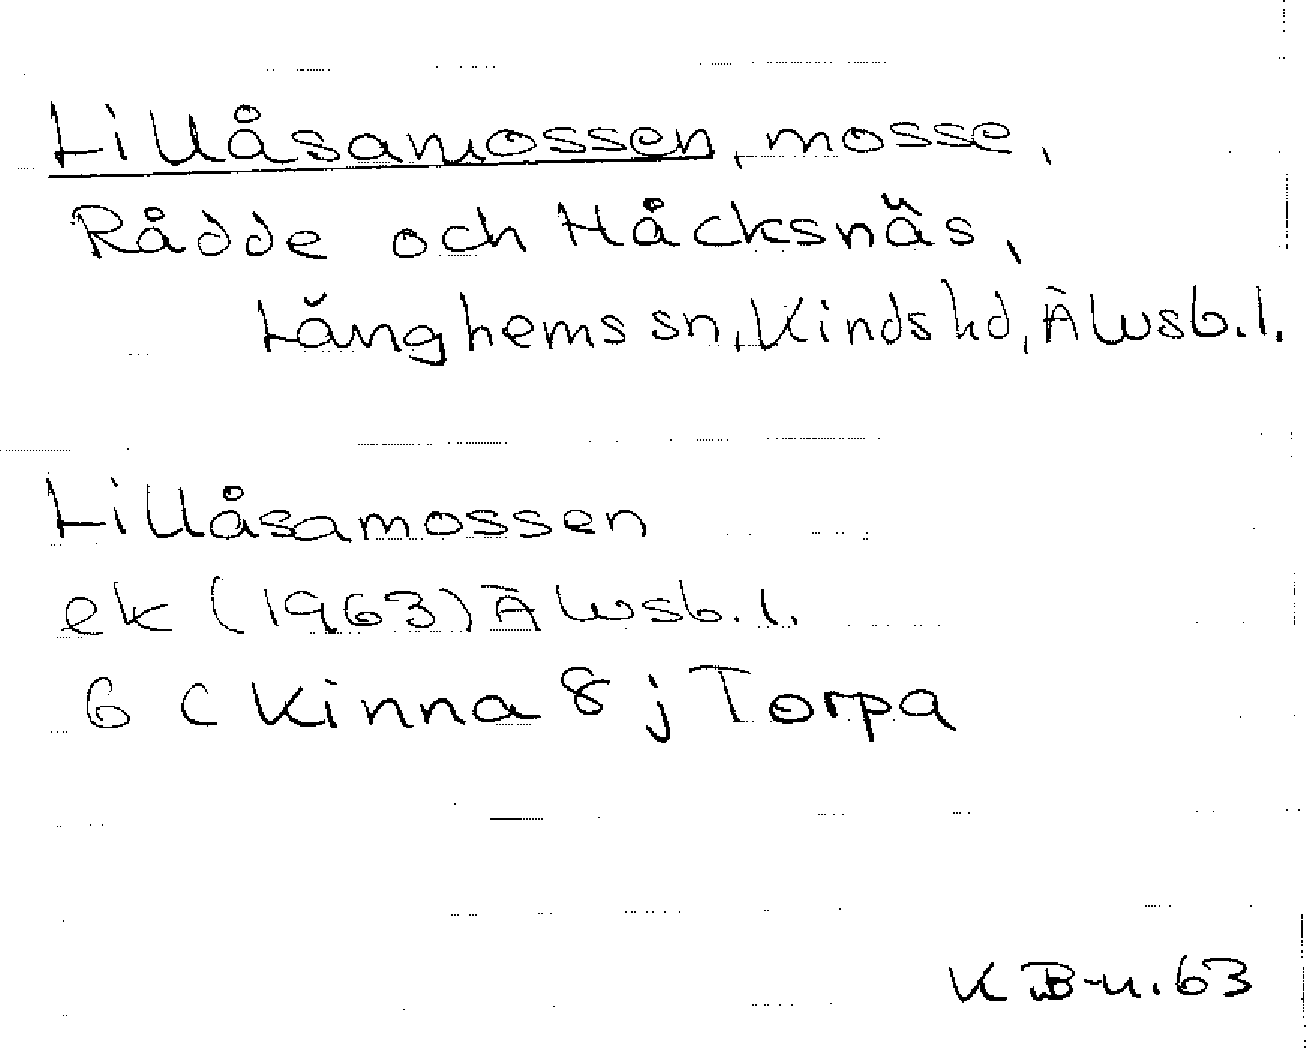 Lillåsamossen, mosse,
Rådde och Håcksnäs,
Länghems sn, Kinds hd, Älvsb. l.
Lillåsamossen
ek (1963) Älvsb. l.
6 C Kinna 8 j Torpa
K B-n. 63